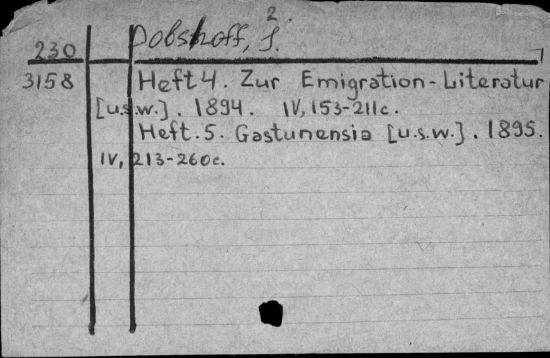 2.
230 Dobshoff, J.
3158 Heft 4. Zur Emigration-Literatur
[u.s.w.]. 1894. IV, 153-211c.
Heft. 5. Gastunensia [u.s.w.]. 1895.
IV, 213-260c.